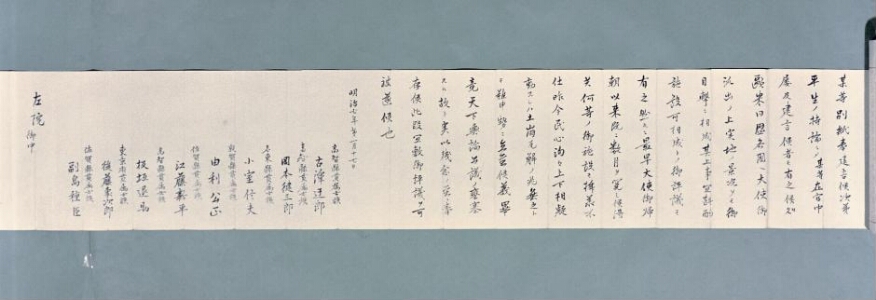 某等別紙奉建言候次第
平生ノ持論ニシテ某等在官中
屡及建言候者モ有之候処
欧米同盟各国へ大使御
派出ノ上実地ノ景況ヲモ御
目撃ニ相成其上事宜斟酌
施設可相成トノ御評議モ
有之然ルニ最早大使御帰
朝以来既ニ数月ヲ閲シ候得
共何等ノ御施設モ拝承不
仕昨今民心洶々上下相疑
動スレハ土崩瓦解ノ兆無之ト
モ難申勢ニ立至候義畢
竟天下輿論公議ノ壅塞
スル故ト実以残念ノ至ニ奉
存候此段宜敷御評議可
被遂候也
明治七年第一月十七日
高知県貫属士族
古澤迂郎
高知県貫属士族
岡本健三郎
名東県貫属士族
小室信夫
敦賀県貫属士族
由利公正
佐賀県貫属士族
江藤新平
高知県貫属士族
板垣退助
東京府貫属士族
後藤象次郎
佐賀県貫属士族
副島種臣
左院 御中